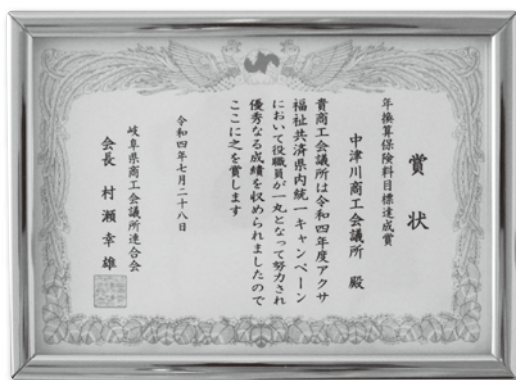 賞状
年換算保険料目標達成賞
中津川商工会議所 殿
貴商工会議所は令和四年度アクサ
福祉共済県内統一キャンペーン
において役職員が一丸となって努力され
優秀なる成績を収められましたので
ここに之を賞します
令和四年七月二十八日
岐阜県商工会議所連合会
会長 村瀬幸雄